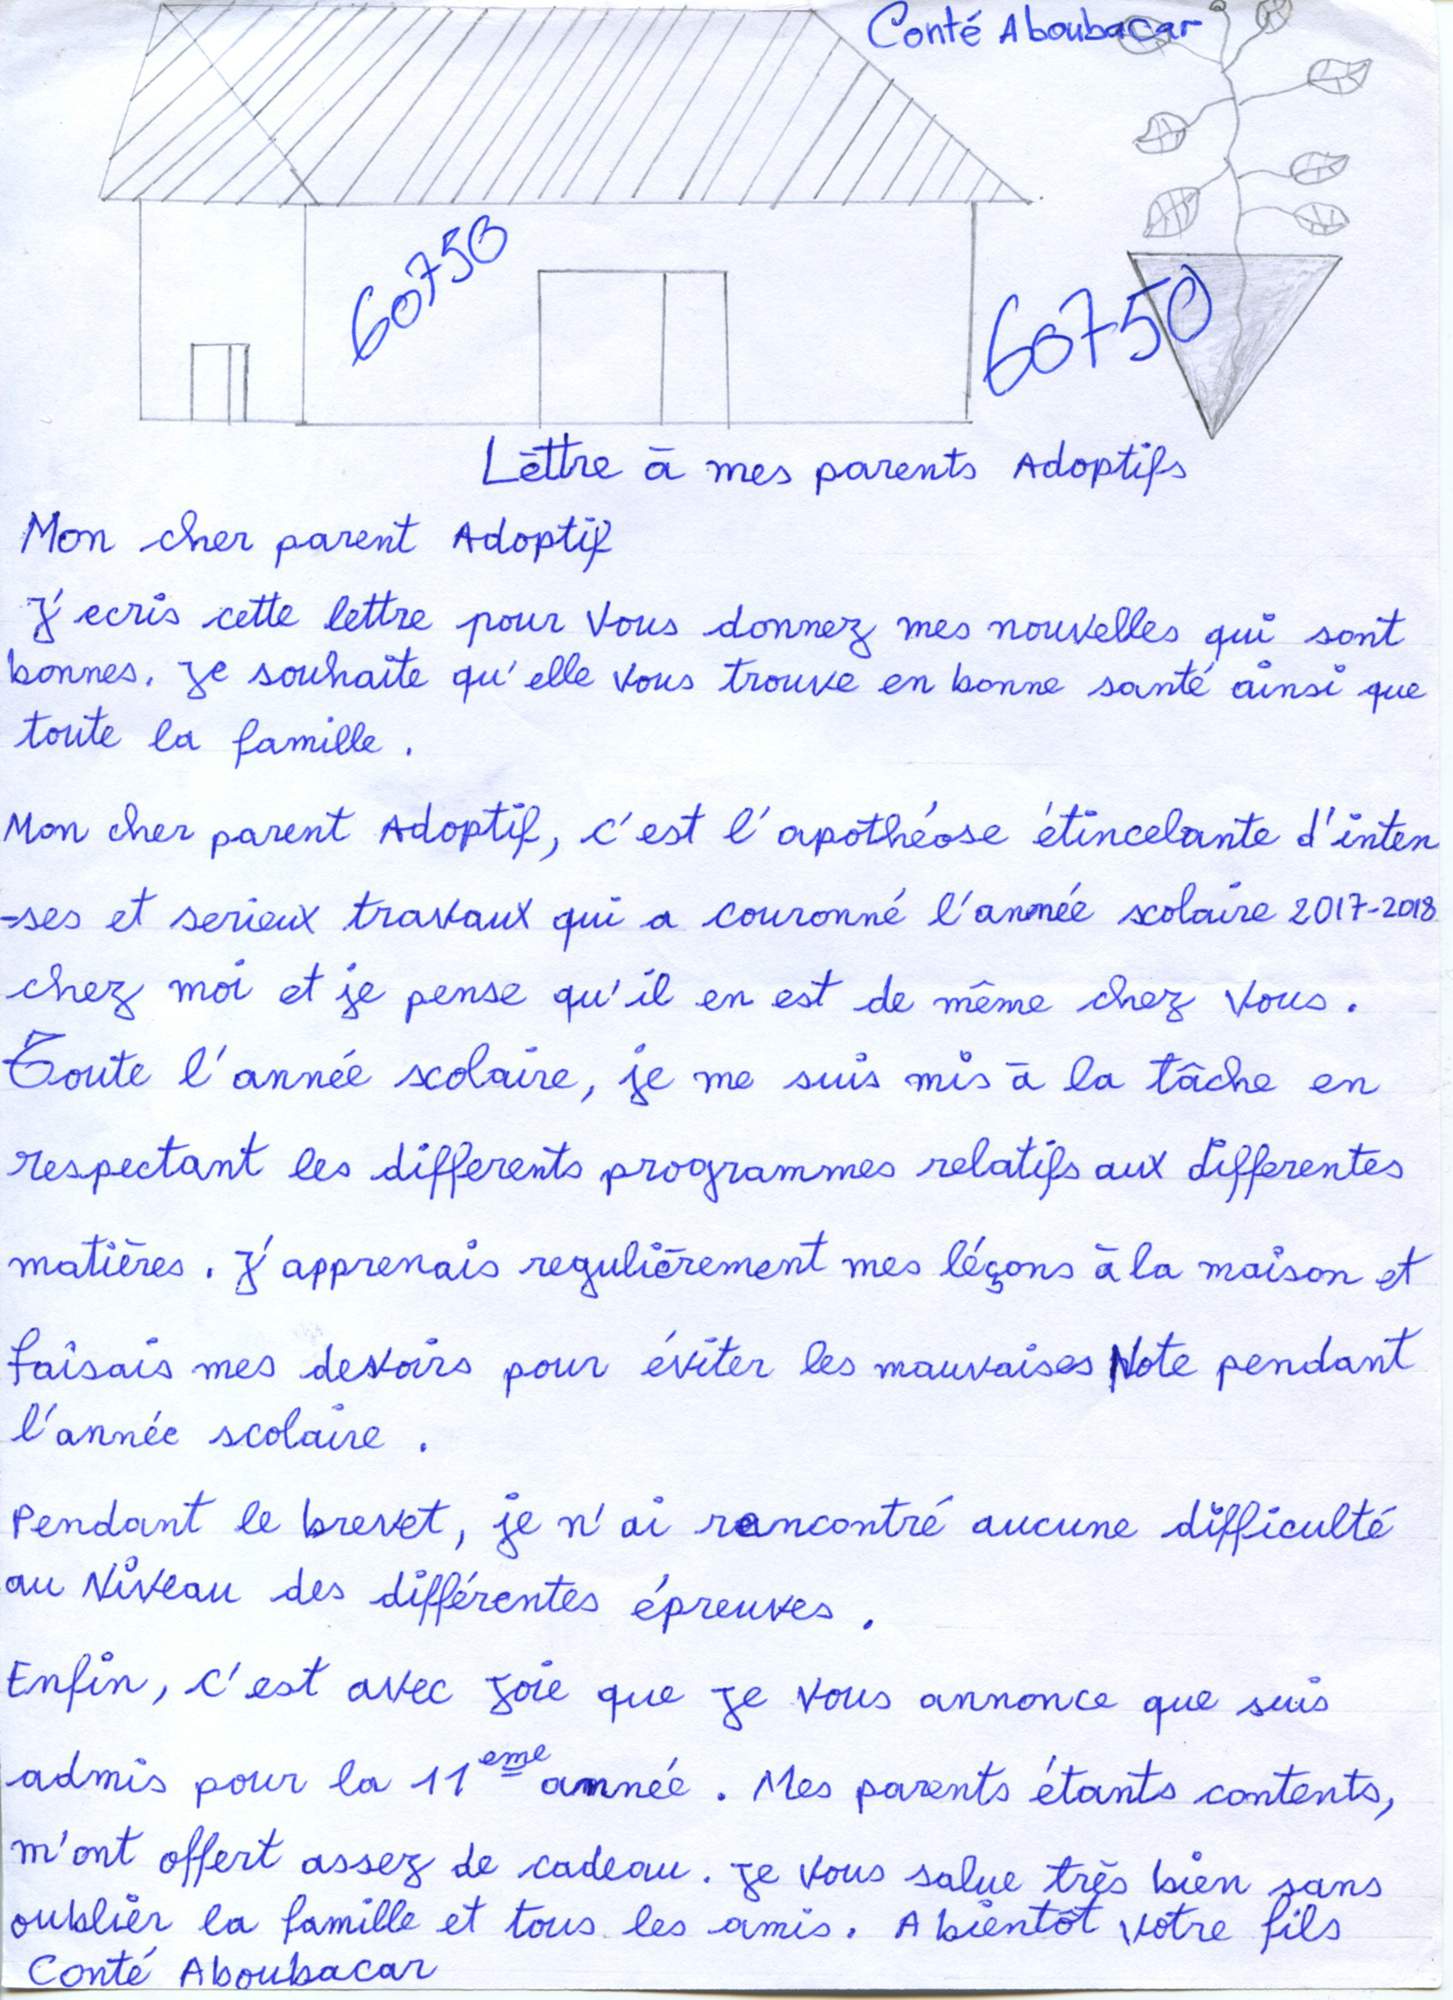 Conté Aboubacar
60750
60750
Lēttre ā mes parents Adoptifs
Mon cher parent Adoptif
J'ecris cette lettre pour vous donnez mes nouvelles qui sont
bonnes. Je souhaite qu'elle vous trouve en bonne santé ainsi que
toute la famille.
Mon cher parent Adoptif, c'est l'apothéose étincelante d'inten
-ses et serieux travaux qui a couronné l'année scolaire 2017-2018
chez moi et je pense qu'il en est de même chez vous.
Toute l'année scolaire, je me suis mis ā la tâche en
respectant les differents programmes relatifs aux differentes
matières. J'apprenais regulièrement mes léçons ā la maison et
faisais mes devoirs pour éviter les mauvaises Note pendant
l'année scolaire.
Pendant le brevet, je n'ai rencontré aucune difficulté
au Niveau des différentes épreuves.
Enfin, c'est avec joie que je vous annonce que suis
admis pour la 11eme année. Mes parents étants contents,
m'ont offert assez de cadeau. Je vous salue très bien sans
oublier la famille et tous les amis. A bientôt votre fils
Conté Aboubacar